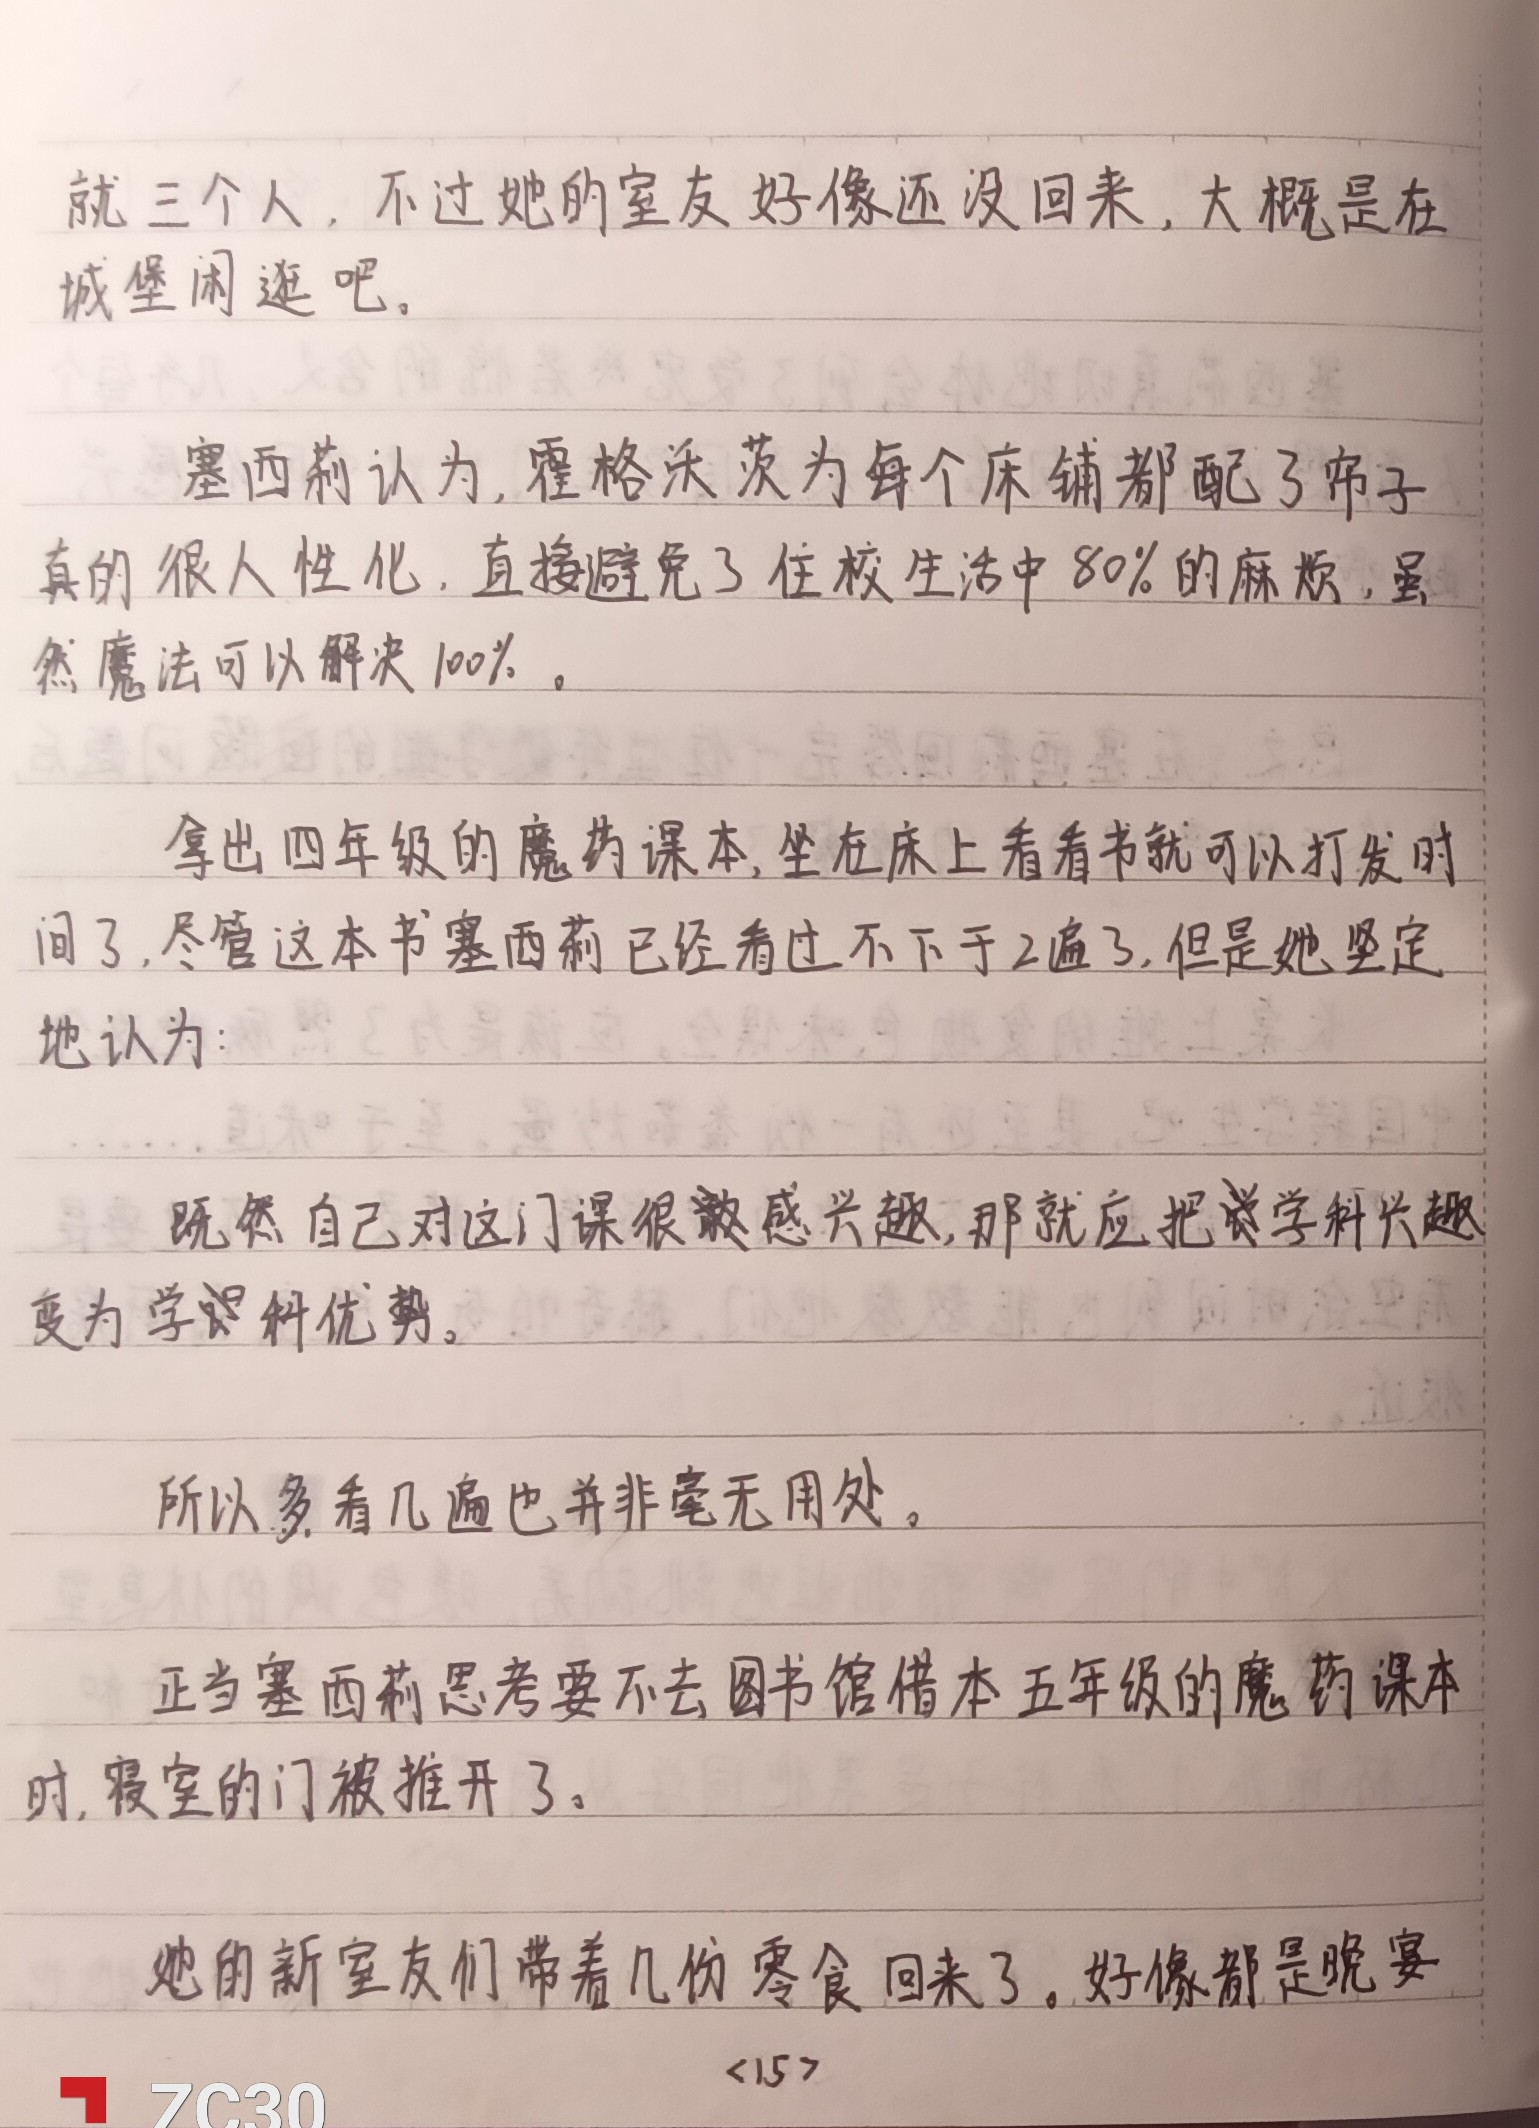 就三个人，不过她的室友好像还没回来，大概是在
城堡闲逛吧。
塞西莉认为，霍格沃茨为每个床铺都配了帘子
真的很人性化，直接避免了住校生活中80%的麻烦，虽
然魔法可以解决100%。
拿出四年级的魔药课本，坐在床上看看书就可以打发时
间了，尽管这本书塞西莉已经看过不下于2遍了，但是她坚定
地认为：
既然自己对这门课很感兴趣，那就应把学科兴趣
变为学科优势。
所以多看几遍也并非毫无用处。
正当塞西莉思考要不去图书馆借本五年级的魔药课本
时，寝室的门被推开了。
她的新室友们带着几份零食回来了。好像都是晚宴
<15>
ZC30